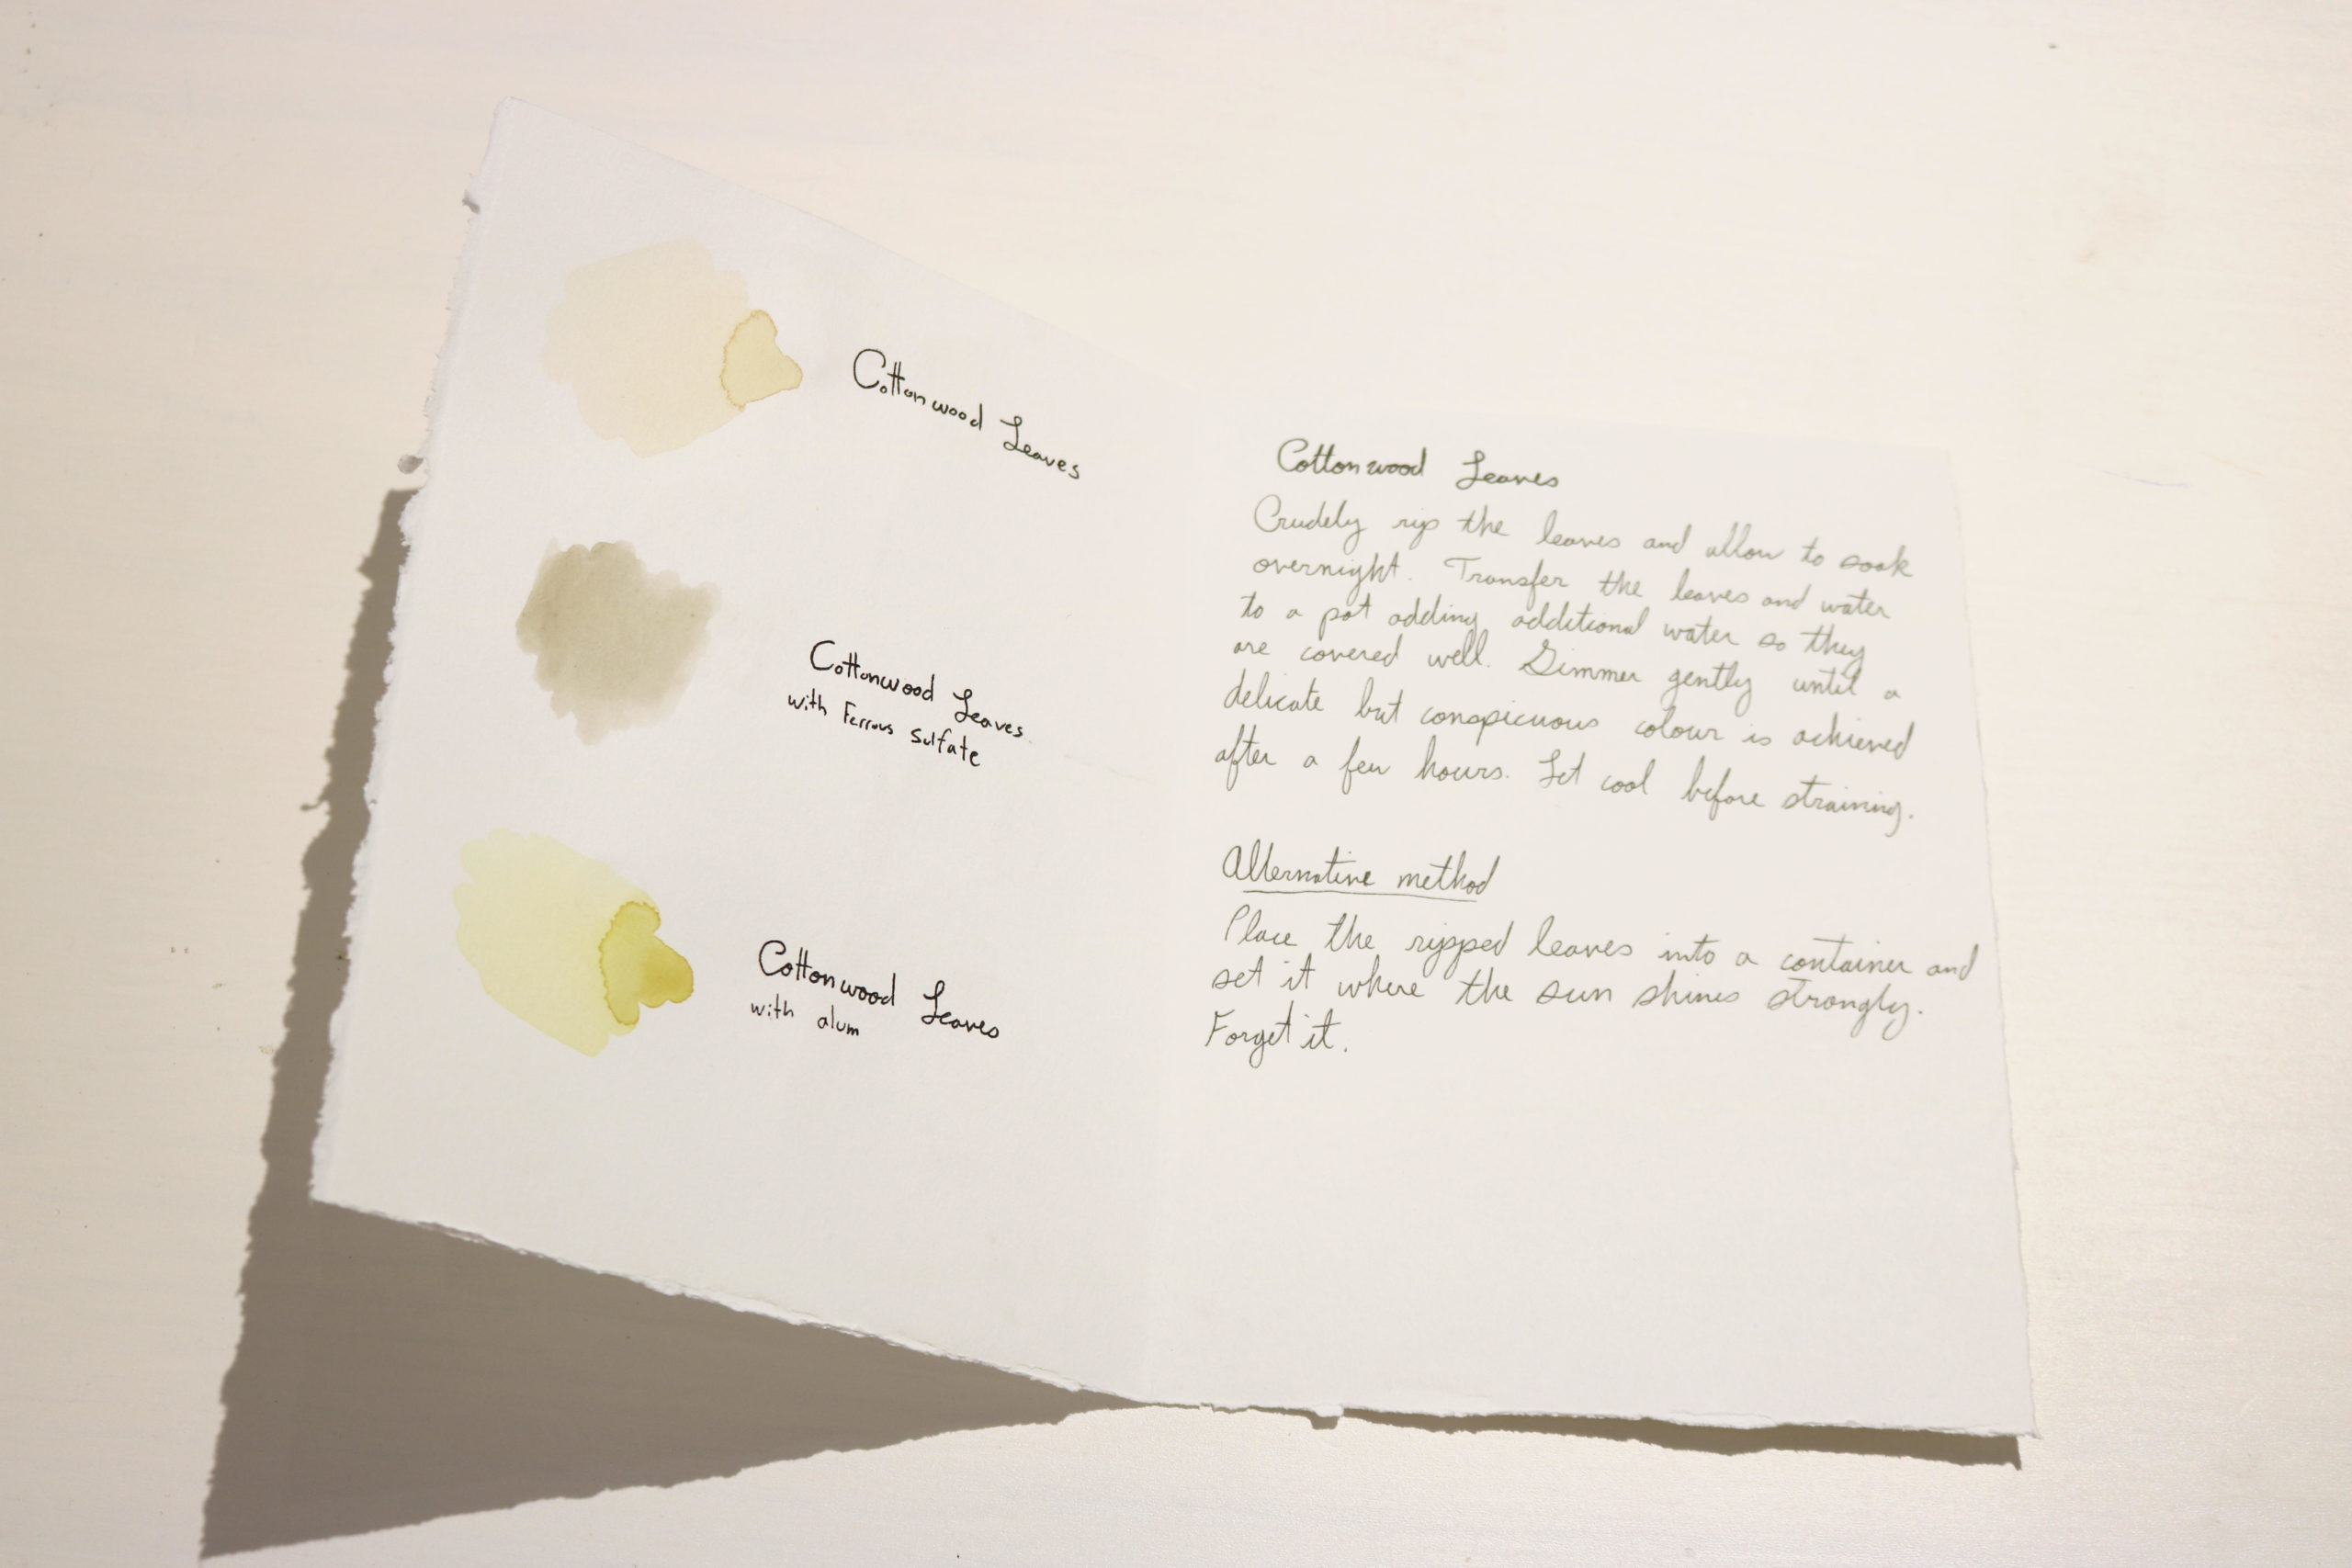 Cottonwood Leaves
Cottonwood Leaves
with Ferrous Sulfate
Cottonwood Leaves
with alum
Cottonwood Leaves
Crudely rip the leaves and allow to soak
overnight. Transfer the leaves and water
to a pot adding additional water so they
are covered well. Simmer gently until a
delicate but conspicuous colour is achieved
after a few hours. Let cool before straining.
Alternative method
Place the ripped leaves into a container and
set it where the sun shines strongly.
Forget it.